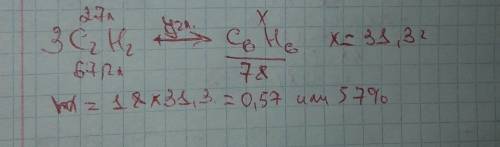 27л x
3C₂H₂ ⟷ C₆H₆ x = 31,3г
67,2л 78
= 18 × 31,3 = 0,57 или 57%